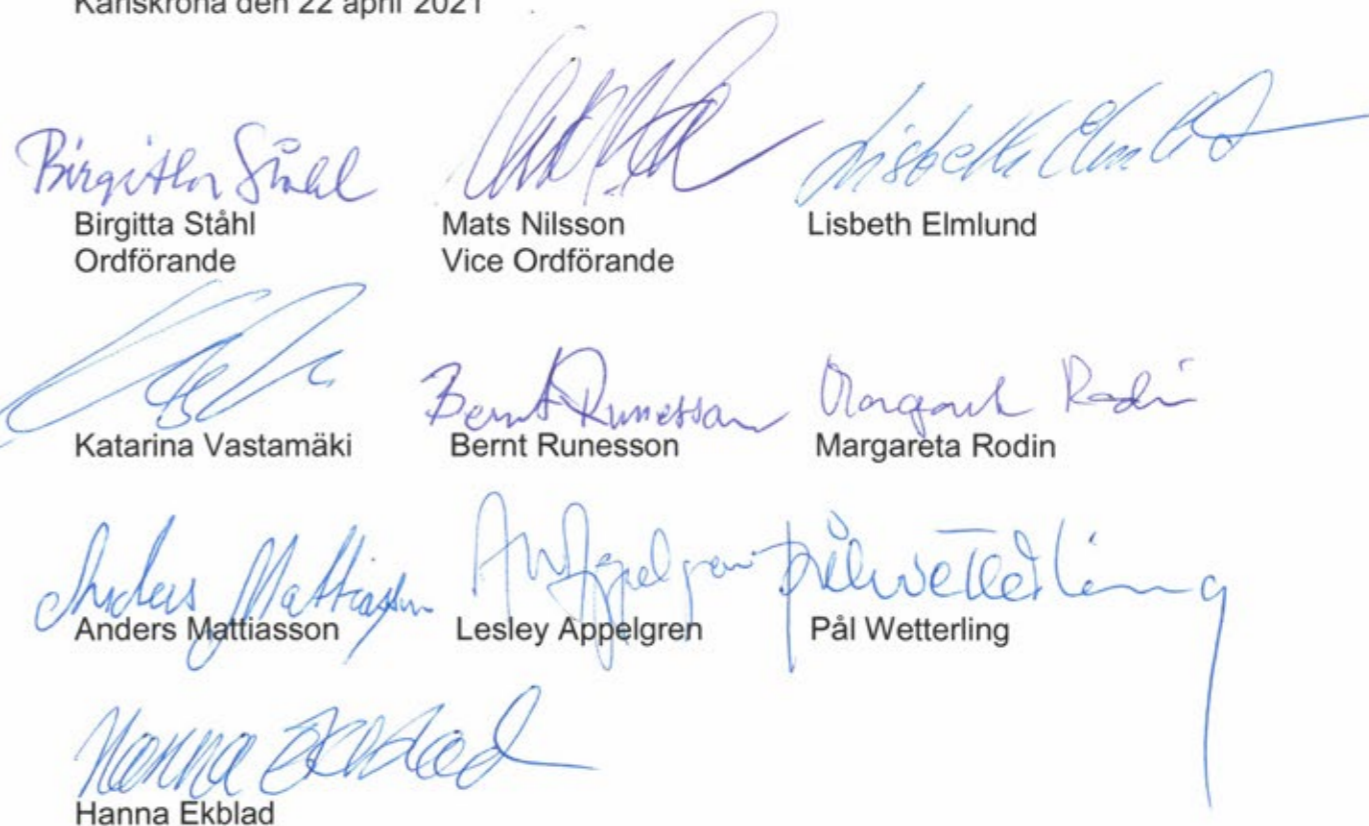 Karlskrona den 22 april 2021
Birgitta Ståhl
Mats Nilsson
Lisbeth Elmlund
Birgitta Ståhl
Ordförande
Mats Nilsson
Vice Ordförande
Lisbeth Elmlund
Bernt Runesson
Margareta Rodin
Katarina Vastamäki
Bernt Runesson
Margareta Rodin
Anders Mattiasson
Appelgren
Pål Wetterling
Anders Mattiasson
Lesley Appelgren
Pål Wetterling
Hanna Ekblad
Hanna Ekblad